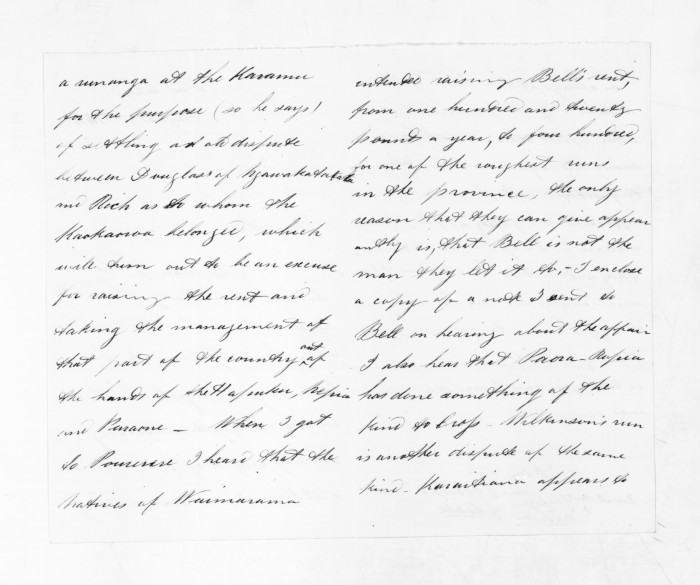 a runanga at the Karamu
for the purpose (so he says)
of settling an old dispute
between Douglas of Ngawakatatara
and Rich as to whom the
Kaokaoroa belonged, which
will turn out to be an excuse
for raising the rent and
taking the management of
that part of the country out of
the hands of the Hapuku, Ropia
and Paraone — When I got
to Pourerere I heard that the
Natives of Waimarama
intended raising Bell's rent,
from one hundred and twenty
pounds a year, to four hundred,
for one of the roughest runs
in the province, the only
reason that they can give appear
antly is, that Bell is not the
man they let it to, — I enclose
a copy of a note I sent to
Bell on hearing about the affair
I also hear that Paora-Ropia
has done something of the
kind to Cross - Wilkinson's run
is another dispute of the same
kind - Karaitiana appears to